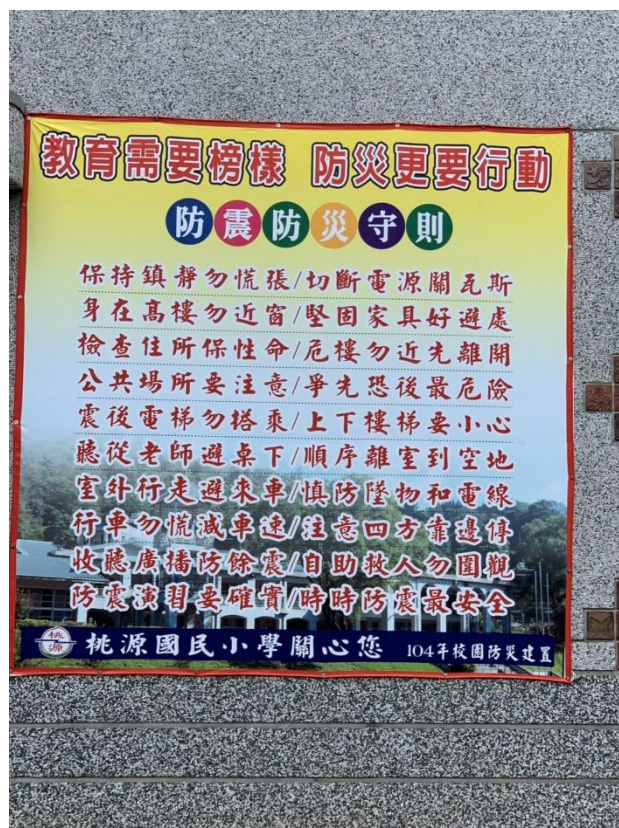 教育需要榜樣 防災更要行動
防震防災守則
保持鎮靜勿慌張/切斷電源關瓦斯
身在高樓勿近窗/堅固家具好避處
檢查住所保性命/危樓勿近先離開
公共場所要注意/爭先恐後最危險
震後電梯勿搭乘/上下樓梯要小心
聽從老師避桌下/順序離室到空地
室外行走避來車/慎防墜物和電線
行車勿慌減車速/注意四方靠邊停
收聽廣播防餘震/自助救人勿圍觀
防震演習要確實/時時防震最安全
桃源 桃源國民小學關心您 104年校園防災建置